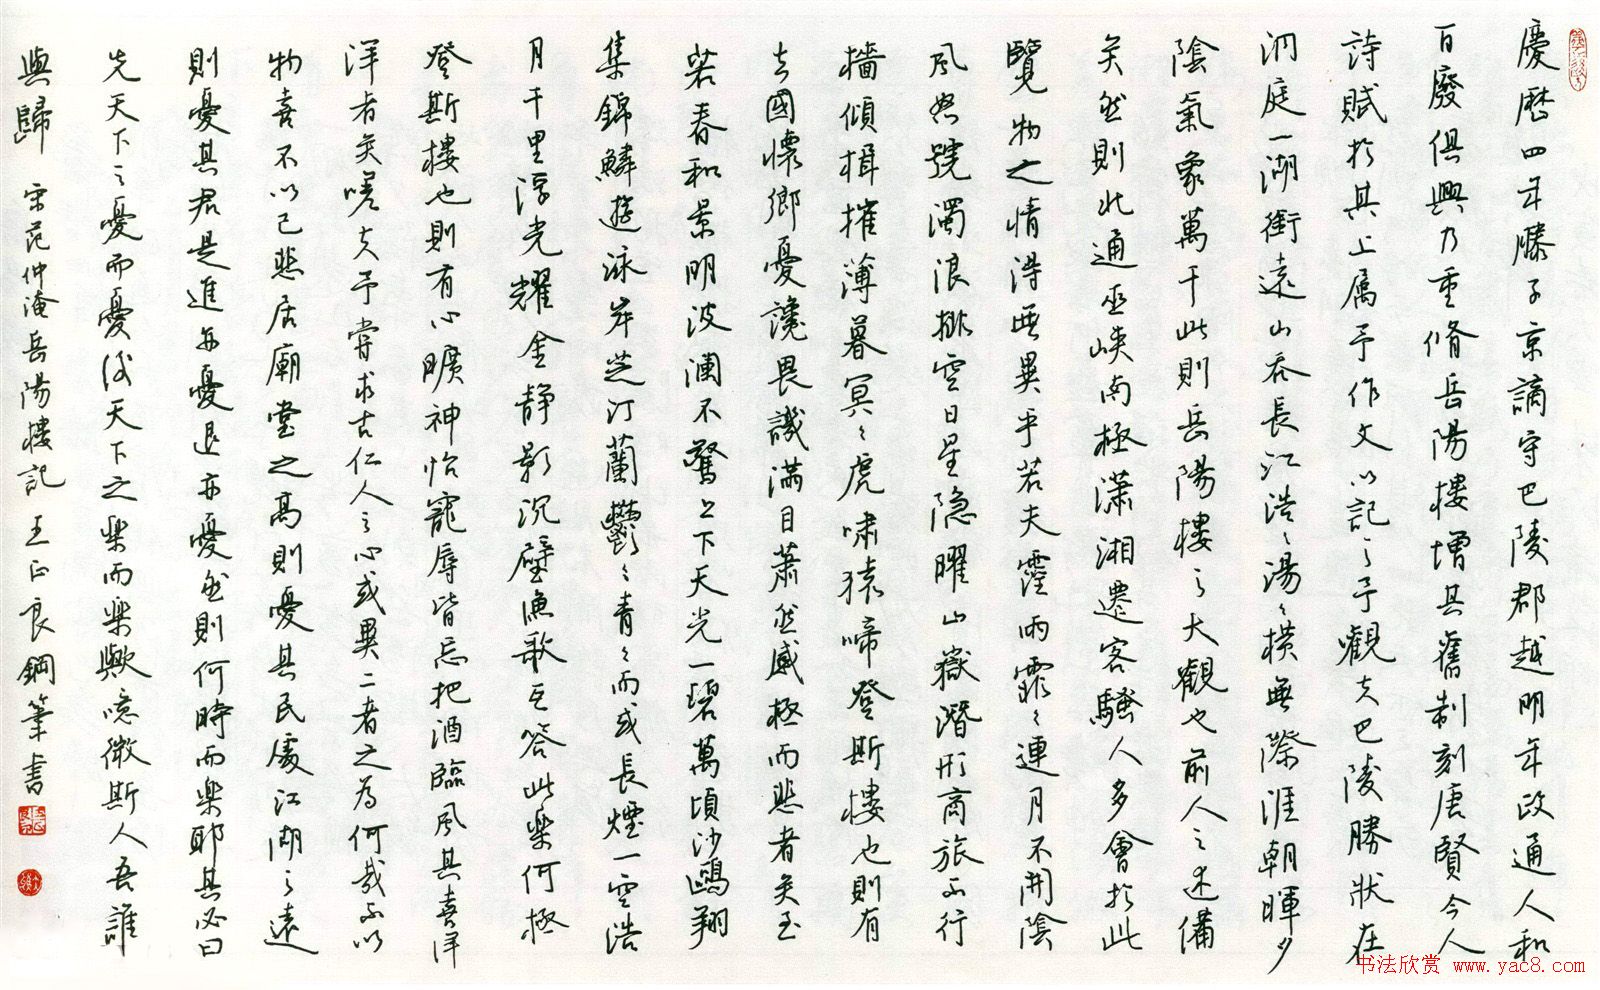 慶曆四年滕子京謫守巴陵郡越明年政通人和
百廢俱興乃重脩岳陽樓增其舊制刻唐賢今人
詩賦於其上属予作文以記之予觀夫巴陵勝狀在
洞庭一湖銜遠山吞長江浩〻湯〻橫無際涯朝暉夕
陰氣象萬千此則岳陽樓之大觀也前人之述備
矣然則北通巫峽南極瀟湘遷客騷人多會於此
覽物之情得無異乎若夫霪雨霏〻連月不開陰
風怒號濁浪排空日星隐曜山嶽潛形商旅不行
檣傾楫摧薄暮冥〻虎嘯猿啼登斯樓也則有
去國懷鄉憂讒畏譏滿目蕭然感極而悲者矣至
若春和景明波瀾不驚上下天光一碧萬頃沙鷗翔
集錦鱗游泳岸芷汀蘭鬱〻青〻而或長煙一空浩
月千里浮光耀金静影沉璧漁歌互答此樂何極
登斯樓也則有心曠神怡寵辱皆忘把酒臨風其喜洋
洋者矣嗟夫予嘗求古仁人之心或異二者之為何哉不以
物喜不以己悲居廟堂之高則憂其民處江湖之遠
則憂其君是進亦憂退亦憂然則何時而樂耶其必曰
先天下之憂而憂後天下之樂而樂歟噫微斯人吾誰
與歸 宋范仲淹岳陽樓記 王正良鋼筆書
书法欣赏 www.yac8.com